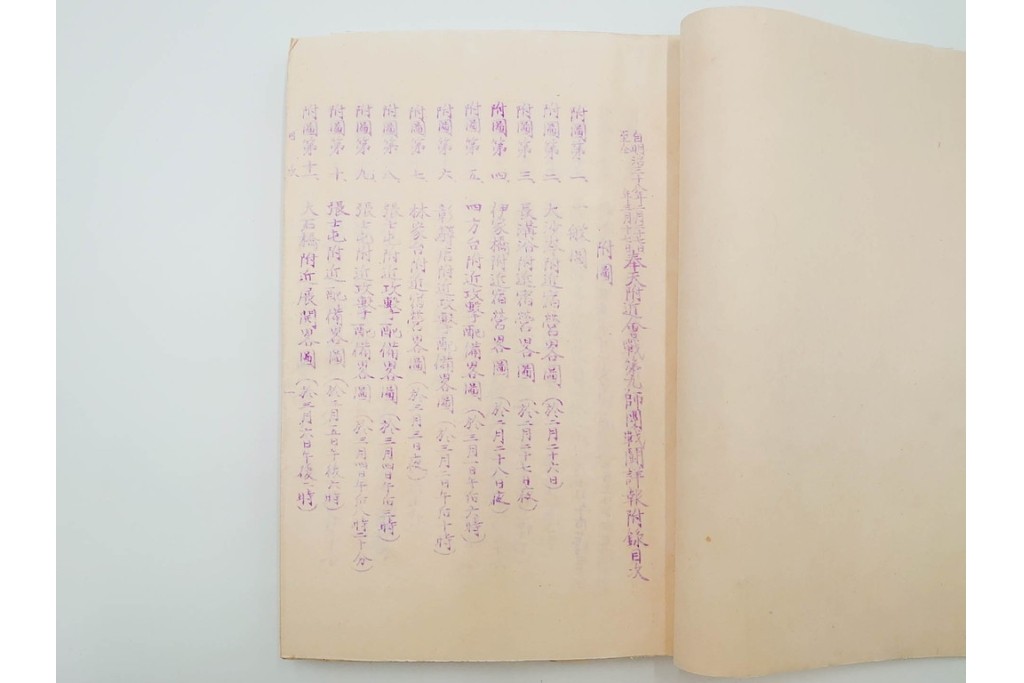 自明治三十八年二月二十七日
至仝年三月十一日
奉天附近會戰第九師團戰鬪詳報附錄目次
附圖
附圖第一、一般圖
附圖第二、大沙嶺附近宿營畧圖(於二月二十六日)
附圖第三、溝沿附近宿營畧圖(於二月二十七日夜)
附圖第四、伊家橋附近宿營畧圖(於二月二十八日夜)
附圖第五、四方台附近攻擊配備畧圖(於三月一日午后六時)
附圖第六、彰驛站附近攻擊配備畧圖(於三月二日午后十時)
附圖第七、林家台附近宿營畧圖(於三月三日夜)
附圖第八、張士屯附近攻擊配備畧圖(於三月四日午后三時)
附圖第九、張士屯附近攻擊配備畧圖(於三月四日午后八時二十分)
附圖第十、張士屯附近配備畧圖(於三月五日午後六時)
附圖第十一、大石橋附近展開畧圖(於三月六日午後二時)
目次
一